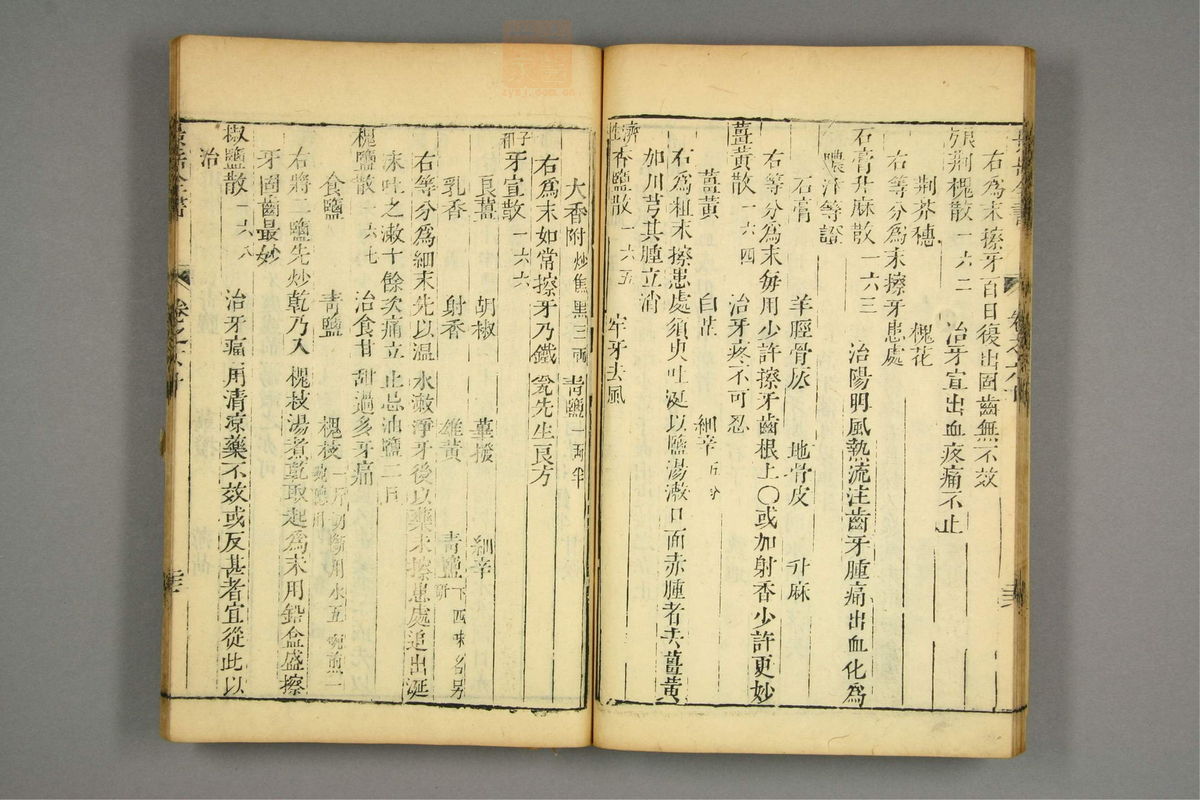 右爲末擦牙百日復出固齒無不效
荆槐散一六二 治牙宣出血疼痛不止
荆芥穗 槐花
右等分爲末擦牙患處
石膏升麻散一六三 治陽明風熱流注齒牙腫痛出血化爲
膿汁等證
石膏 羊脛骨灰 地骨皮 升麻
右等分爲末每用少許擦牙齒根上〇或加射香少許更妙
薑黄散一六四 治牙疼不可忍
薑黄 白芷 細辛五分
右爲粗末擦患處須臾吐涎以鹽湯漱口面赤腫者去薑黄
加川芎其腫立消
濟生香鹽散一六五 牢牙去風
大香附炒焦黑三兩 青鹽一兩半
右爲末如常擦牙乃鐵甕先生良方
子和牙宣散一六六
良薑 胡椒 蓽撥 細辛
乳香 射香 雄黄 青鹽下四味各另研
右等分爲細末先以温水漱淨牙後以藥末擦患處追出涎
沫吐之漱十餘次痛立止忌油鹽二日
槐鹽散一六七 治食甘甜過多牙痛
食鹽 青鹽 槐枝一斤剉斷用水五碗煎一
右將二鹽先炒乾乃入槐枝湯煮乾取起爲末用鉛盒盛擦
牙固齒最妙
椒鹽散一六八 治牙痛用清凉藥不效或反甚者宜從此以
治